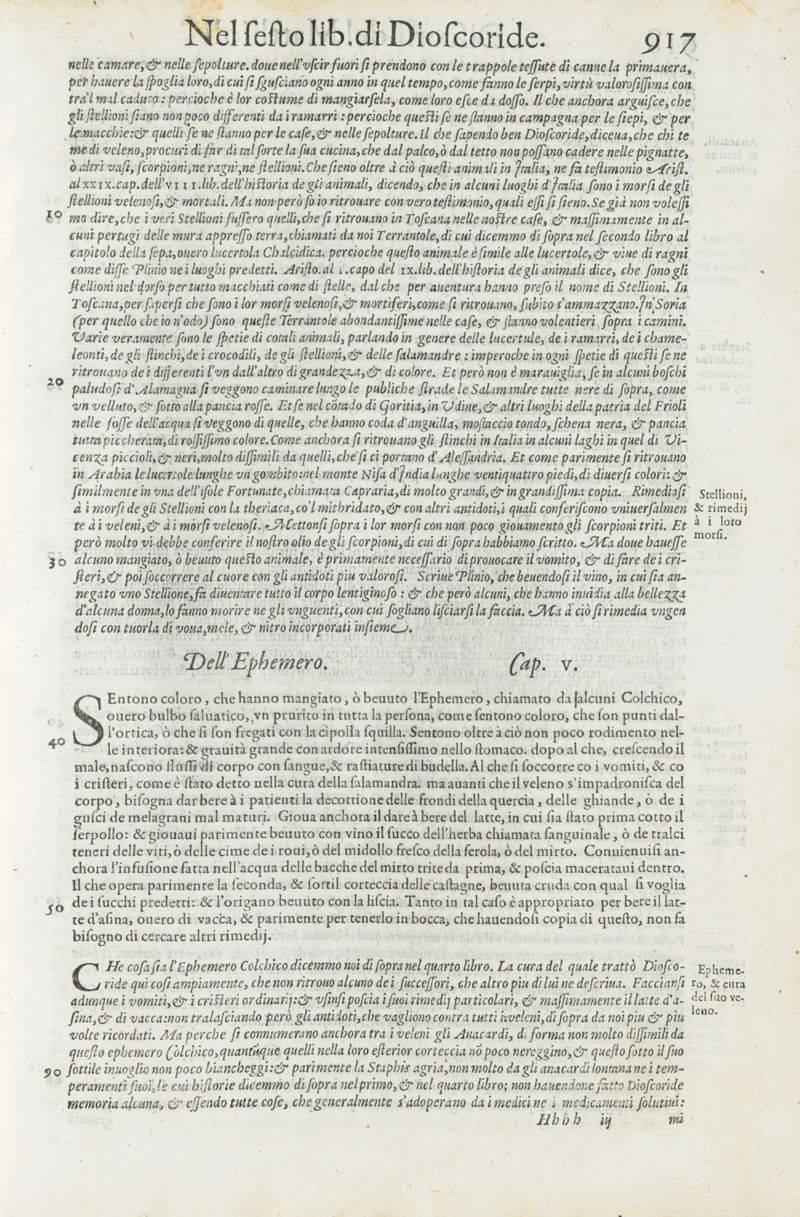 Nel ſeſto lib. di Dioſcoride. 917
nelle camare, & nelle ſepolture. doue nell'vſcir fuori ſi prendono con le trappole teſſute di canne la primauera,
per hauere la ſpoglia loro, di cui ſi ſguſciano ogni anno in quel tempo, come fanno le ſerpi, virtù valoroſiſſima con
tra'l mal caduco: percioche è lor coſtume di mangiarſela, come loro eſce da doſſo. Il che anchora arguiſce, che
gli ſtellioni ſiano non poco differenti da i ramarri: percioche queſti ſe ne ſtanno in campagna per le ſiepi, & per
le macchie: & quelli ſe ne ſtanno per le caſe, & nelle ſepolture. Il che ſapendo ben Dioſcoride, diceua, che chi te
me di veleno, procuri di far di tal ſorte la ſua cucina, che dal palco, ò dal tetto non poſſano cadere nelle pignatte,
ò altri vaſi, ſcorpioni, ne ragni, ne ſtellioni. Che ſieno oltre à ciò queſti animali in Italia, ne fa teſtimonio Ariſt.
al XXIX. cap. dell'VIII. lib. dell'hiſtoria de gli animali, dicendo, che in alcuni luoghi d'Italia ſono i morſi de gli
ſtellioni velenoſi, & mortali. Ma non però ſo io ritrouare con vero teſtimonio, quali eſſi ſi ſieno. Se già non voleſſi
10 mo dire, che i veri Stellioni fuſſero quelli, che ſi ritrouano in Toſcana nelle noſtre caſe, & maſſimamente in al-
cuni pertugi delle mura appreſſo terra, chiamati da noi Terrantole, di cui dicemmo di ſopra nel ſecondo libro al
capitolo della ſepa, ouero lucertola Chalcidica. percioche queſto animale è ſimile alle lucertole, & viue di ragni
come diſſe Plinio ne i luoghi predetti. Ariſto. al I. capo del IX. lib. dell'hiſtoria de gli animali dice, che ſono gli
ſtellioni nel dorſo per tutto macchiati come di ſtelle, dal che per auentura hanno preſo il nome di Stellioni. In
Toſcana, per ſaperſi che ſono i lor morſi velenoſi, & mortiferi, come ſi ritrouano, ſubito s'ammazzano. In Soria
(per quello che io n'odo) ſono queſte Terrantole abondantiſſime nelle caſe, & ſtanno volentieri ſopra i camini.
Varie veramente ſono le ſpetie di cotali animali, parlando in genere delle lucertule, de i ramarri, de i chame-
leonti, de gli ſtinchi, de i crocodili, de gli ſtellioni, & delle ſalamandre: imperoche in ogni ſpetie di queſti ſe ne
ritrouano de i differenti l'vn dall'altro di grandezza, & di colore. Et però non è marauiglia, ſe in alcuni boſchi
20 paludoſi d'Alamagna ſi veggono caminare lungo le publiche ſtrade le Salamandre tutte nere di ſopra, come
vn velluto, & ſotto alla pancia roſſe. Et ſe nel cōtado di Goritia, in Vdine, & altri luoghi della patria del Frioli
nelle foſſe dell'acqua ſi veggono di quelle, che hanno coda d'anguilla, moſtaccio tondo, ſchena nera, & pancia
tutta piccherata, di roſſiſſimo colore. Come anchora ſi ritrouano gli ſtinchi in Italia in alcuni laghi in quel di Vi-
cenza piccioli, & neri, molto diſſimili da quelli, che ſi ci portano d'Aleſſandria. Et come parimente ſi ritrouano
in Arabia le lucertole lunghe vn gombito: nel monte Niſa d'India lunghe ventiquattro piedi, di diuerſi colori: &
ſimilmente in vna dell'iſole Fortunate, chiamata Capraria, di molto grandi, & in grandiſſima copia. Rimediaſi
à i morſi de gli Stellioni con la theriaca, co'l mithridato, & con altri antidoti, i quali conferiſcono vniuerſalmen
te à i veleni, & à i morſi velenoſi. Mettonſi ſopra i lor morſi con non poco giouamento gli ſcorpioni triti. Et
però molto vi debbe conferire il noſtro olio de gli ſcorpioni, di cui di ſopra habbiamo ſcritto. Ma doue haueſſe
30 alcuno mangiato, ò beuuto queſto animale, è primamente neceſſario di prouocare il vomito, & di fare de i cri-
ſteri, & poi ſoccorrere al cuore con gli antidoti piu valoroſi. Scriue Plinio, che beuendoſi il vino, in cui ſia an-
negato vno Stellione, fa diuentare tutto il corpo lentiginoſo: & che però alcuni, che hanno inuidia alla bellezza
d'alcuna donna, lo fanno morire ne gli vnguenti, con cui ſogliano liſciarſi la faccia. Ma à ciò ſi rimedia vngen
doſi con tuorla di voua, mele, & nitro incorporati inſieme.
Stellioni,
& rimedij
à i loro
morſi.
Dell'Ephemero. Cap. V.
SEntono coloro, che hanno mangiato, ò beuuto l'Ephemero, chiamato da alcuni Colchico,
ouero bulbo ſaluatico, vn prurito in tutta la perſona, come ſentono coloro, che ſon punti dal-
l'ortica, ò che ſi ſon fregati con la cipolla ſquilla. Sentono oltre à ciò non poco rodimento nel-
40 le interiora: & grauità grande con ardore intenſiſſimo nello ſtomaco. dopo al che, creſcendo il
male, naſcono fluſſi di corpo con ſangue, & raſtiature di budella. Al che ſi ſoccorre co i vomiti, & co
i criſteri, come è ſtato detto nella cura della ſalamandra. ma auanti che il veleno s'impadroniſca del
corpo, biſogna dar bere à i patienti la decottione delle frondi della quercia, delle ghiande, ò de i
guſci de melagrani mal maturi. Gioua anchora il dare à bere del latte, in cui ſia ſtato prima cotto il
ſerpollo: & giouaui parimente beuuto con vino il ſucco dell'herba chiamata ſanguinale, ò de tralci
teneri delle viti, ò delle cime de i roui, ò del midollo freſco della ferola, ò del mirto. Conuienuiſi an-
chora l'infuſione fatta nell'acqua delle bacche del mirto trite da prima, & poſcia maceratаui dentro.
Il che opera parimente la ſeconda, & ſottil corteccia delle caſtagne, beuuta cruda con qual ſi voglia
50 de i ſucchi predetti: & l'origano beuuto con la liſcia. Tanto in tal caſo è appropriato per bere il lat-
te d'aſina, ouero di vacca, & parimente per tenerlo in bocca, che hauendoſi copia di queſto, non fa
biſogno di cercare altri rimedij.
CHe coſa ſia l'Ephemero Colchico dicemmo noi di ſopra nel quarto libro. La cura del quale trattò Dioſco-
ride qui coſi ampiamente, che non ritrouo alcuno de i ſucceſſori, che altro piu di lui ne deſcriua. Faccianſi
adunque i vomiti, & i criſteri ordinarij: & vſinſi poſcia i ſuoi rimedij particolari, & maſſimamente il latte d'a-
ſina, & di vacca: non tralaſciando però gli antidoti, che vagliono contra tutti i veleni, di ſopra da noi piu & piu
volte ricordati. Ma perche ſi connumerano anchora tra i veleni gli Anacardi, di forma non molto diſſimili da
queſto ephemero Colchico, quantūque quelli nella loro eſterior corteccia nō poco nereggino, & queſto ſotto il ſuo
90 ſottile inuoglio non poco biancheggi: & parimente la Staphis agria, non molto da gli anacardi lontana ne i tem-
peramenti ſuoi, le cui hiſtorie dicemmo di ſopra nel primo, & nel quarto libro; non hauendone fatto Dioſcoride
memoria alcuna, & eſſendo tutte coſe, che generalmente s'adoperano da i medici ne i medicamenti ſolutiui:
Epheme-
ro, & cura
del ſuo ve-
leno.
Hhhh iij mi